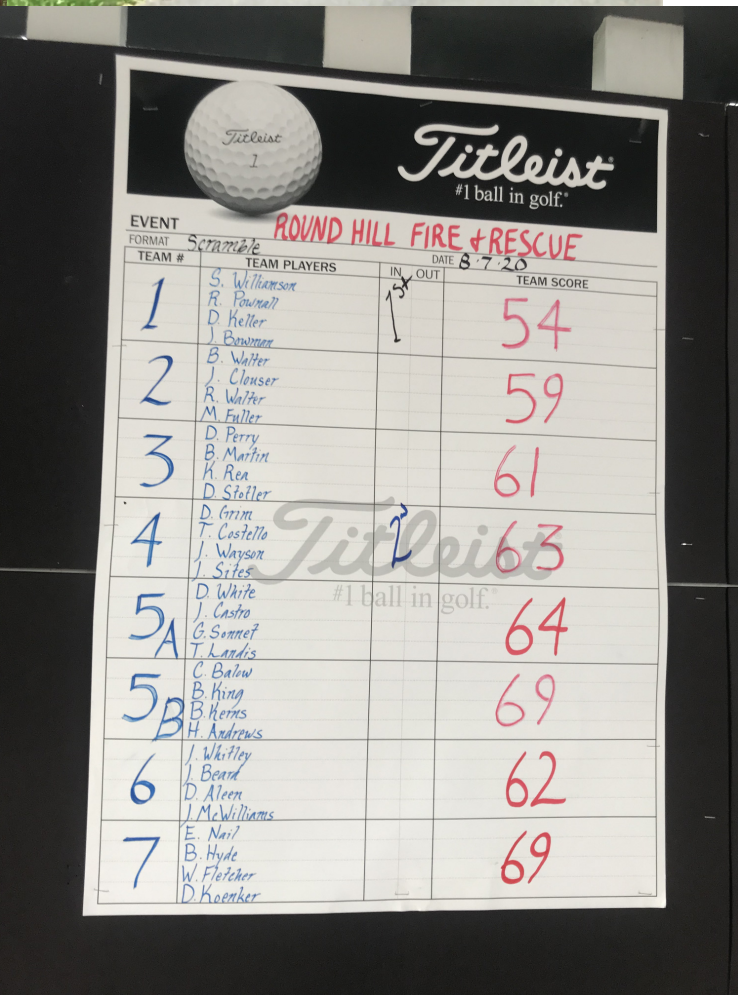 Titleist
1
Titleist
#1 ball in golf.
EVENT ROUND HILL FIRE & RESCUE
FORMAT Scramble DATE 8.7.20
TEAM # TEAM PLAYERS IN OUT TEAM SCORE
1
S. Williamson
R. Pownall
D. Keller
J. Bowman
1st
54
2
B. Walter
J. Clouser
R. Walter
M. Fuller
59
3
D. Perry
B. Martin
K. Rea
D. Stotler
61
4
D. Grim
T. Costello
J. Wayson
J. Sites
2
63
Titleist
#1 ball in golf.
5A
D. White
J. Castro
G. Sonnet
T. Landis
64
5B
C. Balow
B. King
B. Kerns
H. Andrews
69
6
J. Whitley
J. Beard
D. Aleen
J. McWilliams
62
7
E. Nail
B. Hyde
W. Fletcher
D. Koenker
69